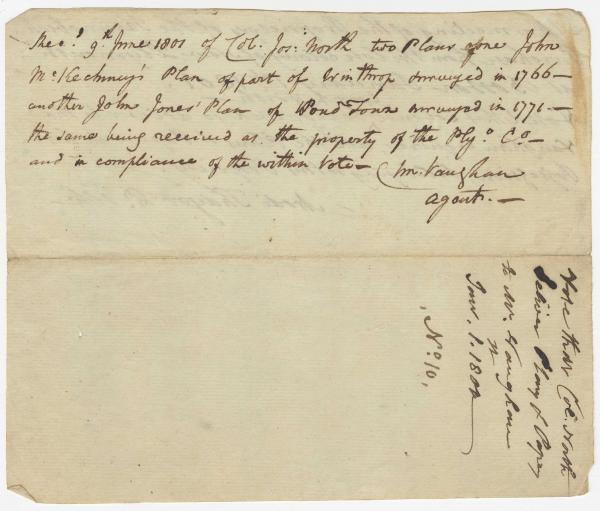 Rec.d 9.th June 1801 of Col. Jos: North two Plans one John
Mc Kechney's Plan of part of Winthrop surveyed in 1766—
another John Jones' Plan of Pond Town surveyed in 1771—
the same being received as the property of the Ply.o C.o—
and in compliance of the within Vote—
Vaughan
agent.—
Vote that Col. North
deliver Plans & Papers
to Mr. Vaughan
Jan. 1. 180
No. 10.